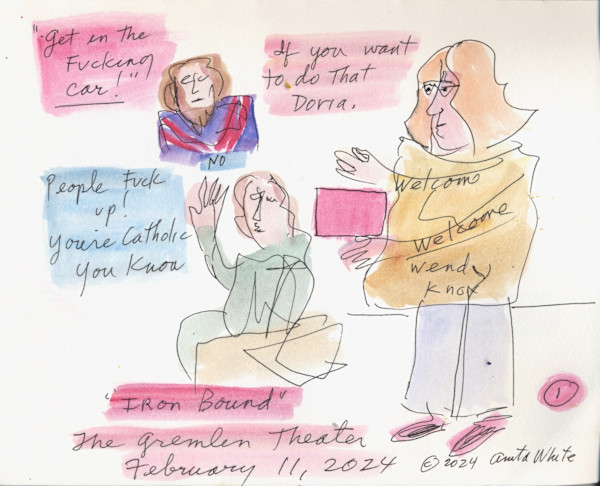 "Get in the
Fucking
car!"
If you want
to do that
Doria.
NO
People Fuck
up!
You're Catholic
You Know
Welcome
Welcome
Wendy
Knox
"IRon Bound"
The Gremlen Theater
February 11, 2024
1
© 2024 Anita White